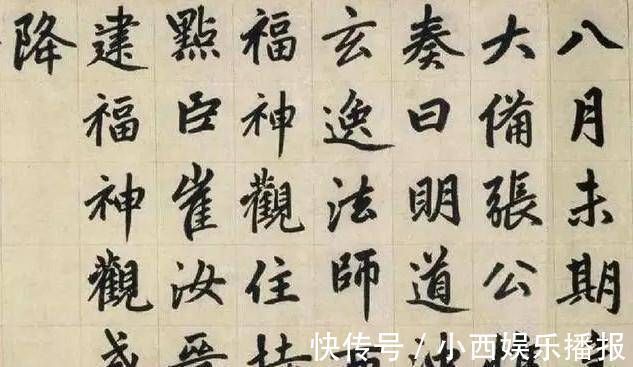 八月未期
大備張公
奏曰明道
玄逸法師
福神觀住
點臣崔汝
建福神觀
降
快传号/小西娱乐播报